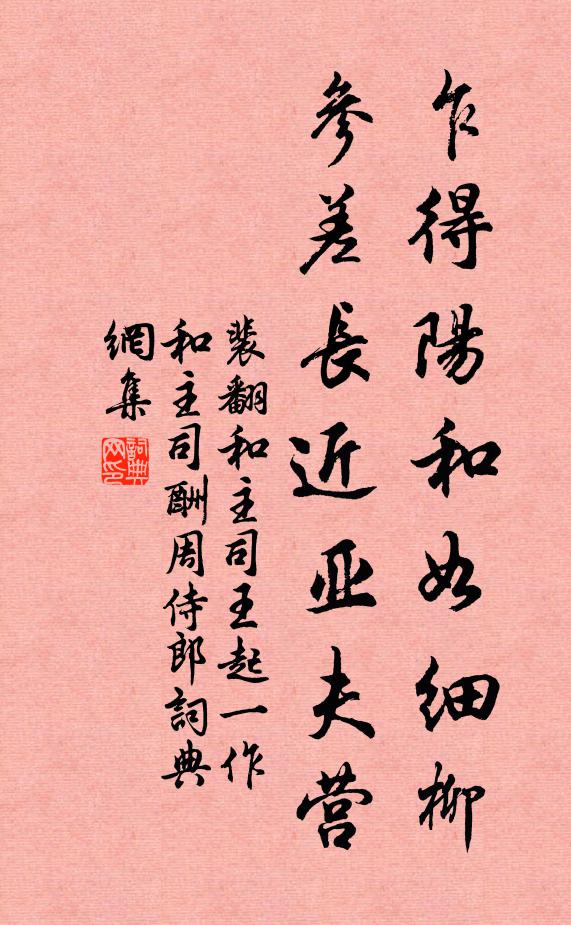 乍得陽和如细柳
參差長近亚夫营
裴翻和主司王起一作
和主司酬周侍郎詞典
網集
詞典網印